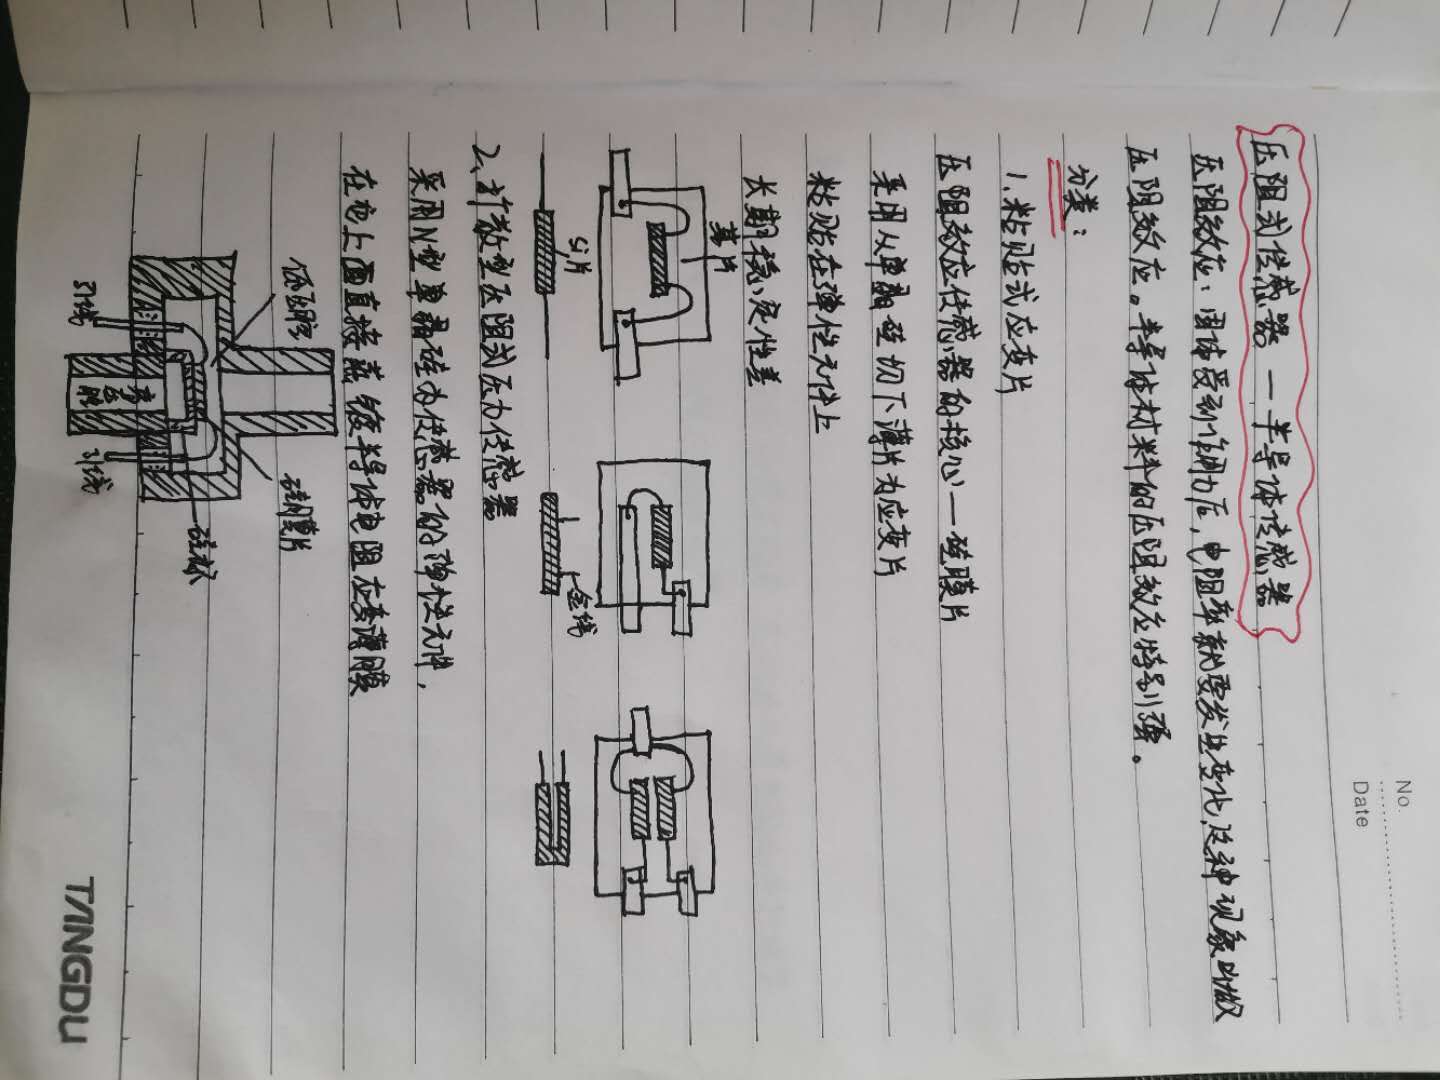 No.
Date
压阻式传感器 — 半导体传感器
压阻效应：固体受到作用力后，电阻率就要发生变化，这种现象叫做
压阻效应。半导体材料的压阻效应特别强。
分类：
1.粘贴式应变片
压阻效应传感器的核心—硅膜片
采用从单晶硅切下薄片为应变片
粘贴在弹性元件上
长期稳定性差
基片
Si片
金线
2、扩散型压阻式压力传感器
采用N型单晶硅为传感器的弹性元件，
在它上面直接蒸镀半导体电阻应变薄膜
低压腔
硅膜片
引线
高压腔
引线
硅杯
TANGDU